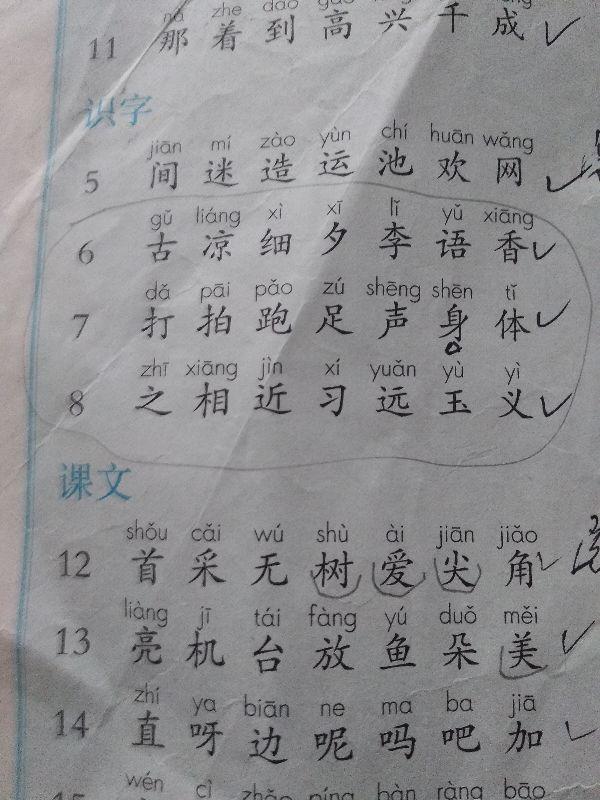 nà zhe dào gāo
11 那 着 到 高 兴 千 成
识字
jiān mí zào yùn chí huān wǎng
5 间 迷 造 运 池 欢 网
gǔ liáng xì xī lǐ yǔ xiāng
6 古 凉 细 夕 李 语 香
dǎ pāi pǎo zú shēng shēn tǐ
7 打 拍 跑 足 声 身 体
zhī xiāng jìn xí yuǎn yù yì
8 之 相 近 习 远 玉 义
课文
shǒu cǎi wú shù ài jiān jiǎo
12 首 采 无 树 爱 尖 角
liàng jī tái fàng yú duǒ měi
13 亮 机 台 放 鱼 朵 美
zhí ya biān ne ma ba jiā
14 直 呀 边 呢 吗 吧 加
wén cì zhǎo píng bàn ràng bāo